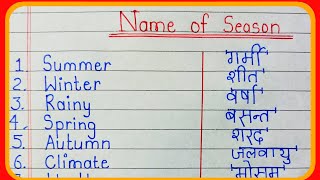 Name of Season
1. Summer 'गर्मी'
2. Winter 'शीत'
3. Rainy 'वर्षा'
4. Spring 'बसन्त'
5. Autumn 'शरद'
6. Climate 'जलवायु'
'मौसम'